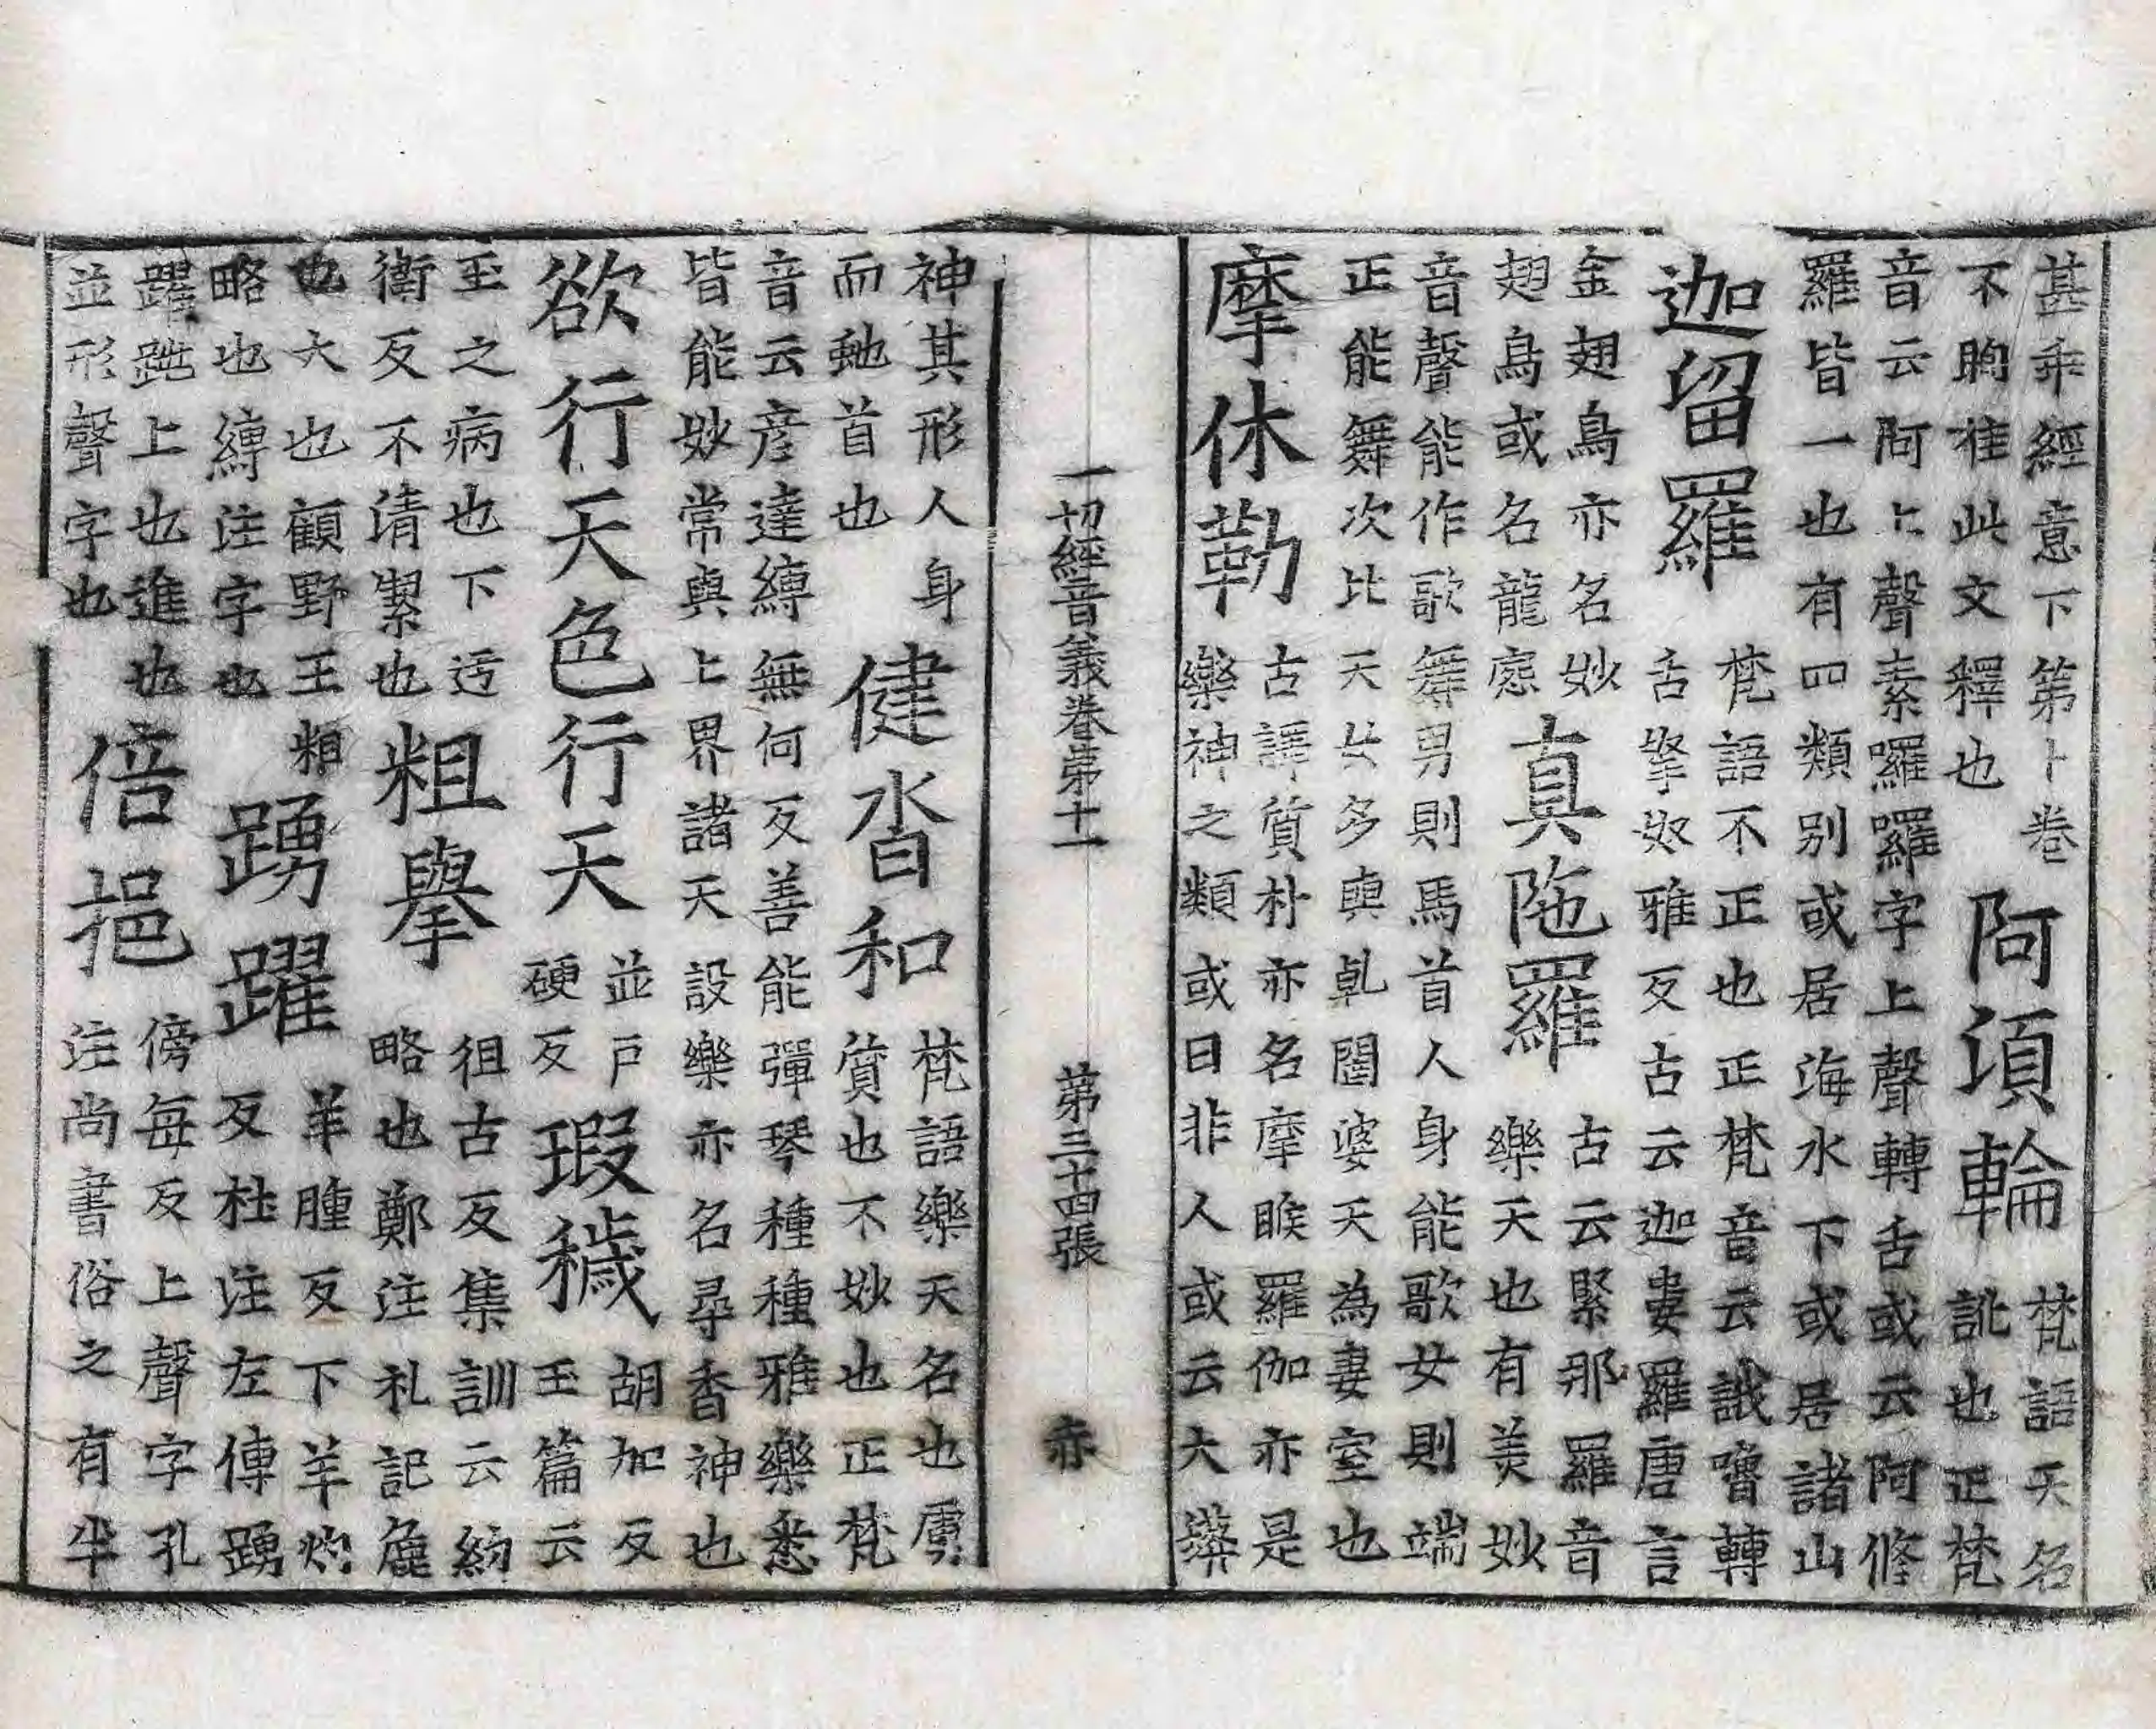 甚乖經意下第卜卷
不眴准此文釋也
阿須輪
梵語天名
訛也正梵
音云阿上聲素囉羅字上聲轉舌或云阿修
羅皆一也有四類别或居海水下或居諸山
迦留羅
梵語不正也正梵音云誐嚕轉
舌拏奴雅反古云迦婁羅唐言
金翅鳥亦名妙
翅鳥或名龍惌
真陁羅
古云緊那羅音
樂天也有美妙
音聲能作歌舞男則馬首人身能歌女則端
正能舞次比天女多與乹闥婆天為妻室也
摩休勒
古譯質朴亦名摩睺羅伽亦是
樂神之類或曰非人或云大蟒
一切經音義卷第十一 第三十四張 亦
神其形人身
而虵首也
健沓和
梵語樂天名也虜
質也不妙也正梵
音云彦達縛無何反善能彈琴種種雅樂悉
皆能妙常與上界諸天設樂亦名尋香神也
欲行天色行天
並戶
硬反
瑕穢
胡加反
玉篇云
玉之病也下迃
衛反不清絜也
粗擧
徂古反集訓云約
略也鄭注礼記麁
也大也顧野王粗
略也縛注字也
踴躍
羊腫反下羊灼
反杜注左傳踴
躍跳上也進也
並形聲字也
倍挹
傍每反上聲字孔
注尚書俗之有半